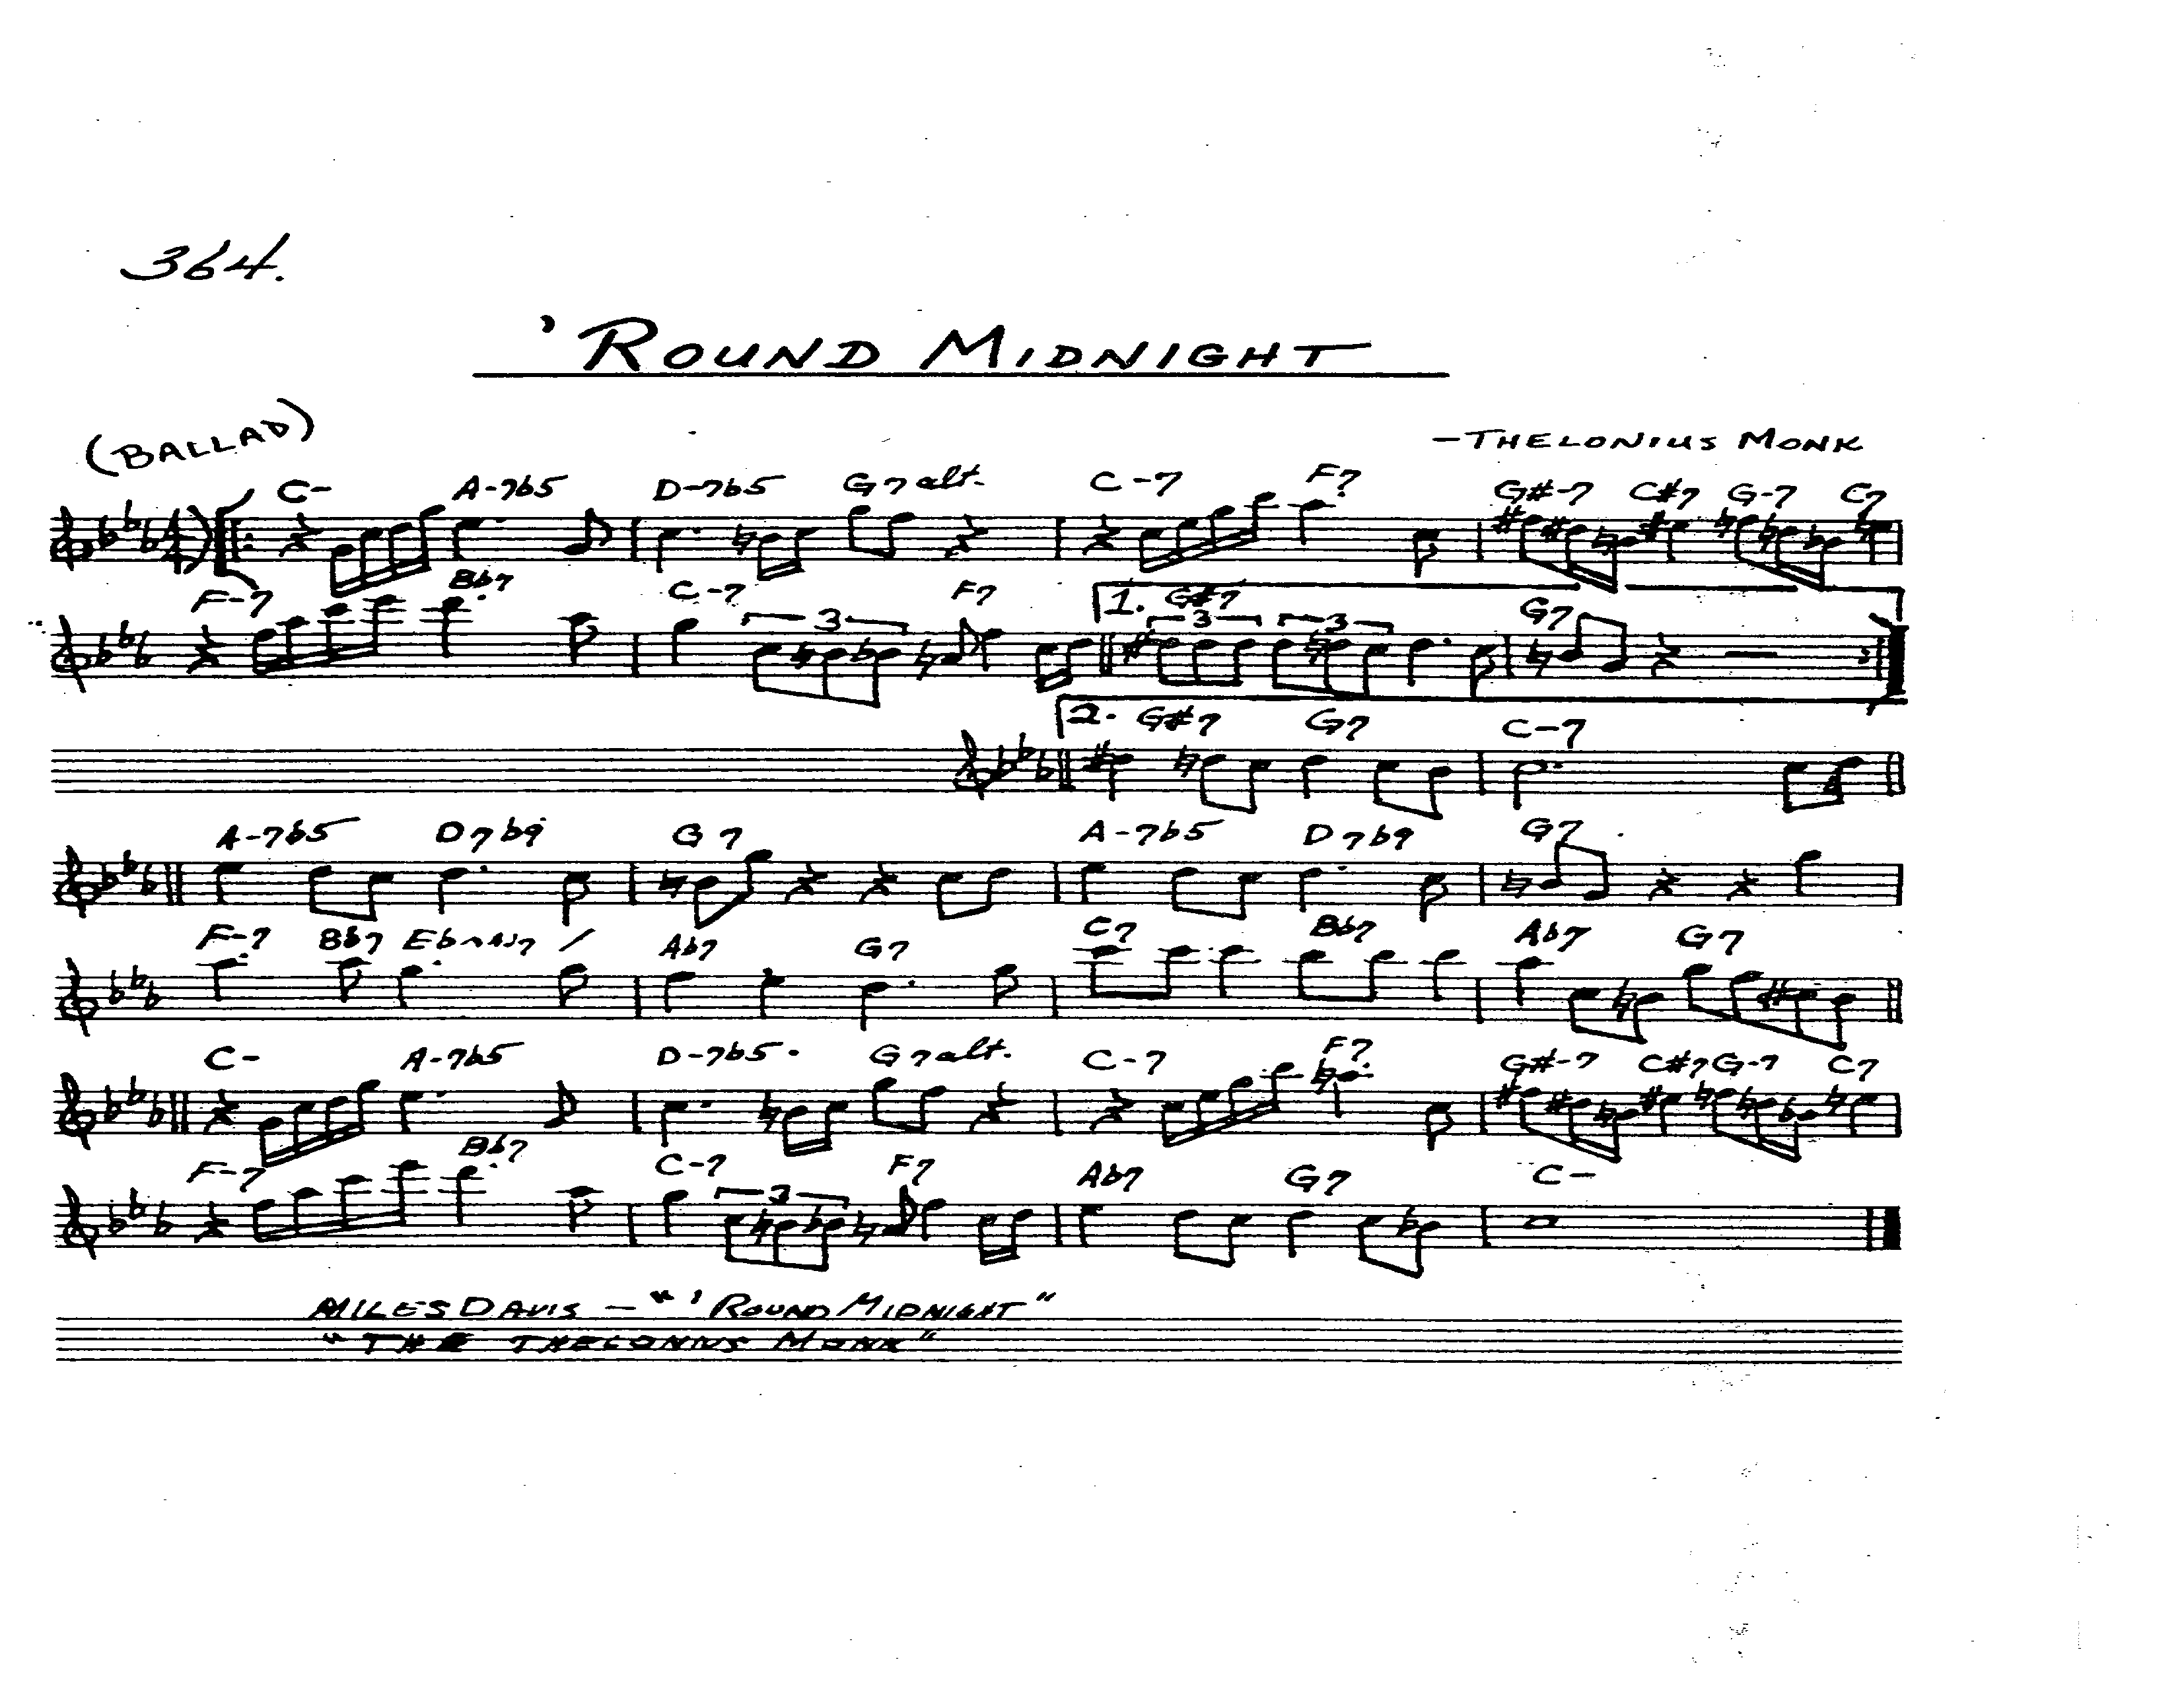 364.
'ROUND MIDNIGHT
(BALLAD)
-THELONIUS MONK
C- A-7b5 D-7b5 G7alt. C-7 F7 G#-7 C#7 G-7 C7
F-7 Bb7 C-7 3 F7 1. G#7 3 3 G7
2. G#7 G7 C-7
A-7b5 D7b9 G7 A-7b5 D7b9 G7
F-7 Bb7 Ebmaj7 / Ab7 G7 C7 Bb7 Ab7 G7
C- A-7b5 D-7b5. G7alt. C-7 F7 G#-7 C#7 G-7 C7
F-7 Bb7 C-7 3 F7 Ab7 G7 C-
MILES DAVIS - "'ROUND MIDNIGHT"
"THE THELONIUS MONK"